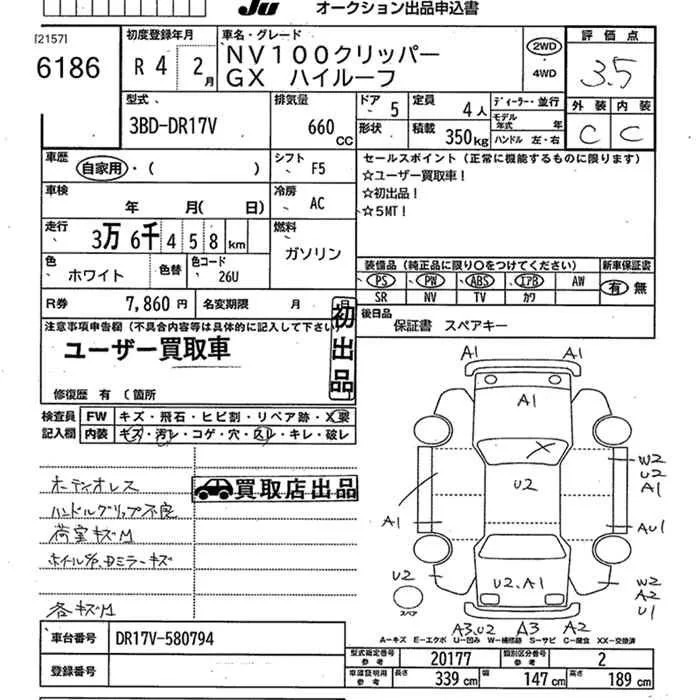 Ju オークション出品申込書
[2157]
6186
初度登録年月
R 4 2月
車名・グレード
NV100クリッパー
GX ハイルーフ
2WD
4WD
評価点
3.5
型式
3BD-DR17V
排気量
660 CC
ドア 5
形状
定員 4人
積載 350kg
ディーラー・並行
モデル年式 年
ハンドル 左・右
外装 内装
C C
車歴
自家用・( )
シフト F5
車検
年 月( 日)
冷房 AC
走行
3万 6千 4 5 8 km
燃料
ガソリン
色
ホワイト
色替
色コード
26U
セールスポイント(正常に機能するものに限ります)
☆ユーザー買取車!
☆初出品!
☆5MT!
装備品(純正品に限り○をつけてください)
新車保証書
PS PW ABS エアB AW
有 無
SR NV TV カワ
R券 7,860円
名変期限 月 日
後日品
保証書 スペアキー
注意事項申告欄(不具合内容等は具体的に記入して下さい)
ユーザー買取車
初出品
修復歴 有 (箇所
検査員記入欄
FW キズ・飛石・ヒビ割・リペア跡・X要
内装 キズ・汚レ・コゲ・穴・スレ・キレ・破レ
買取店出品
オーディオレス
ハンドルグリップ不良
荷室キズM
ミラーキズ
各キズM
A1 A1
A1
X
U2
W2
U2
A1
A1
AU1
U2
スペア
U2.A1
W2
A2
U1
A3.U2 A3 A2
A-キズ E-エクボ U-凹み W-補修跡 S-サビ C-腐食 XX-交換済
車台番号 DR17V-580794
登録番号
型式指定番号 参考 20177
類別区分番号 参考 2
車庫証明用 参考 長さ 339 cm 幅 147 cm 高さ 189 cm